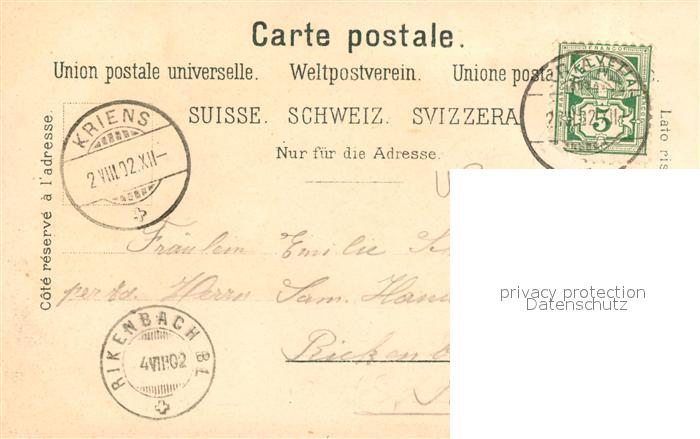 Carte postale.
Union postale universelle. Weltpostverein. Unione posta
SUISSE. SCHWEIZ. SVIZZERA
Nur für die Adresse.
Côté réservé à l'adresse.
Lato ris
KRIENS
2 VIII.02.XII-
FRANCO
HELVETIA
5
Fräulein Emilie
Herrn Sam.
RIKENBACH BL
4 VIII 02
privacy protection
Datenschutz